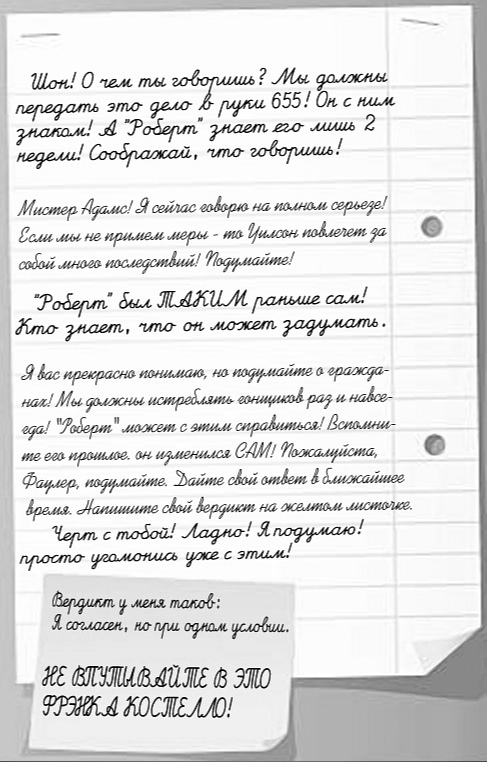 Шон! О чем ты говоришь? Мы должны
передать это дело в руки 655! Он с ним
знаком! А "Роберт" знает его лишь 2
недели! Соображай, что говоришь!
Мистер Адамс! Я сейчас говорю на полном серьезе!
Если мы не примем меры - то Уилсон повлечет за
собой много последствий! Подумайте!
"Роберт" был ТАКИМ раньше сам!
Кто знает, что он может задумать.
Я вас прекрасно понимаю, но подумайте о гражда-
нах! Мы должны истреблять гонщиков раз и навсе-
гда! "Роберт" может с этим справиться! Вспомни-
те его прошлое. он изменился САМ! Пожалуйста,
Фаулер, подумайте. Дайте свой ответ в ближайшее
время. Напишите свой вердикт на желтом листочке.
Черт с тобой! Ладно! Я подумаю!
просто угомонись уже с этим!
Вердикт у меня таков:
Я согласен, но при одном условии.
НЕ ВПУТЫВАЙТЕ В ЭТО
ФРЭНКА КОСТЕЛЛО!